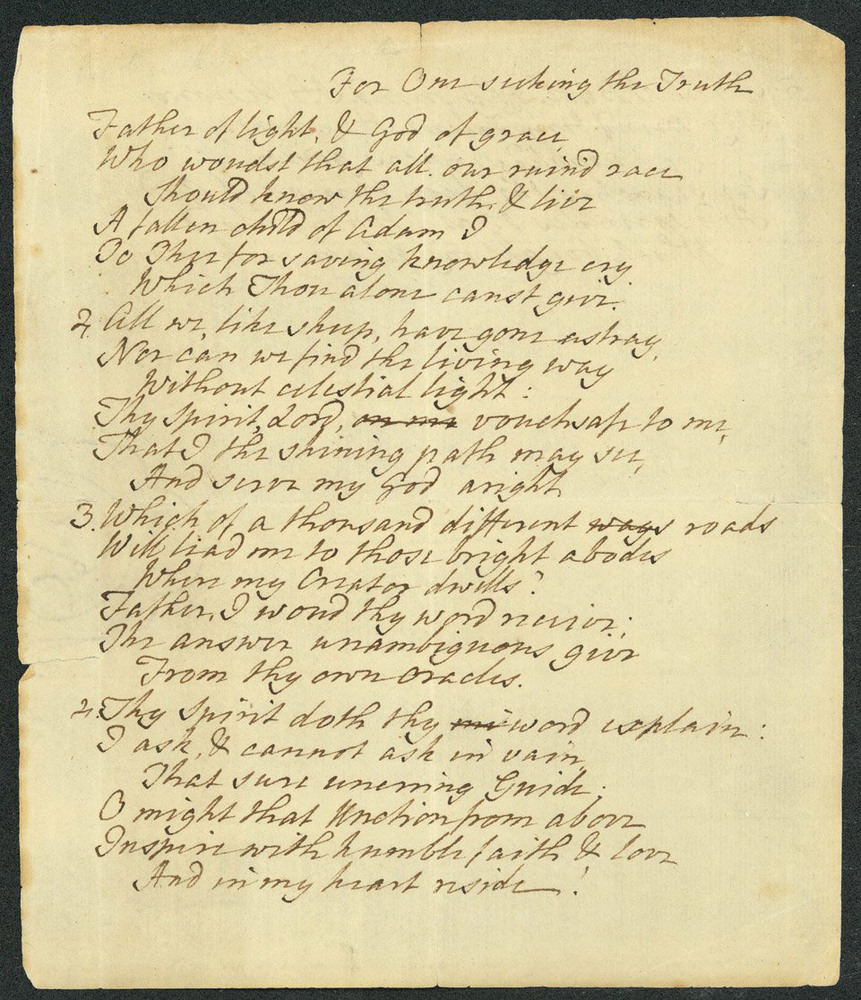 For One seeking the Truth
Father of light, & God of grace,
Who woudst that all our ruin'd race
Should know the truth, & live
A fallen child of Adam I
To Thee for saving knowledge cry
Which Thou alone canst give.
2. All we, like sheep, have gone astray,
Nor can we find the living way
Without celestial light:
Thy Spirit, Lord, on me vouchsafe to me,
That I the shining path may see,
And serve my God aright
3. Which of a thousand different ways roads
Will lead me to those bright abodes
Where my Creator dwells?
Father, I woud thy word receive;
The answer unambiguous give
From thy own oracles.
4. Thy Spirit doth thy word explain:
I ask, & cannot ask in vain,
That sure unerring Guide;
O might that Unction from above
Inspire with humble faith & love
And in my heart reside!